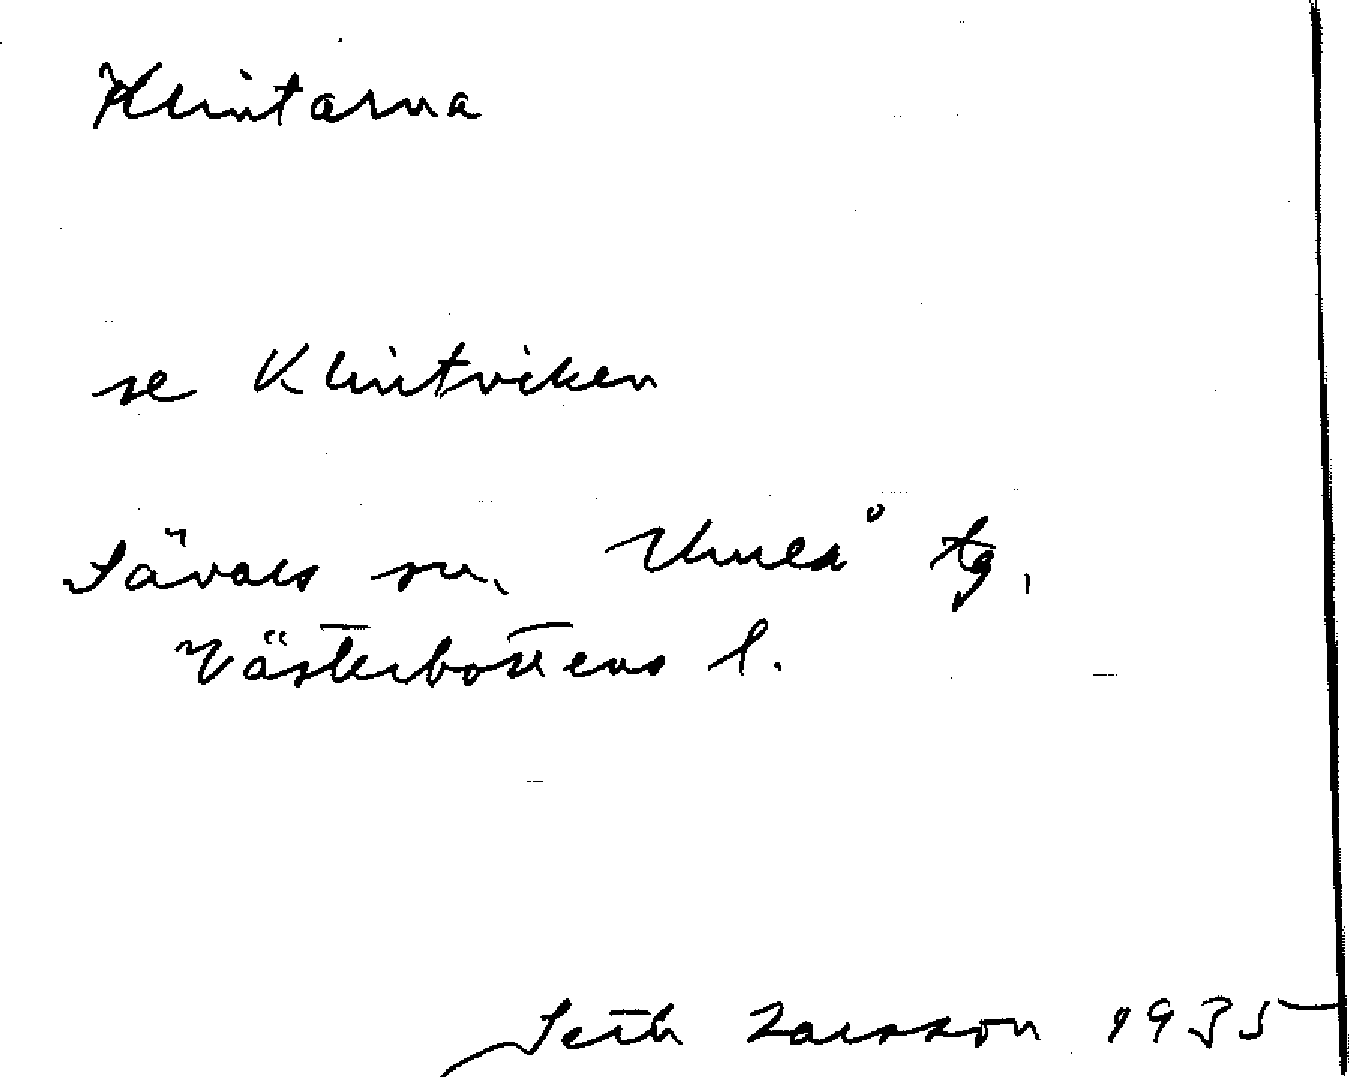 Klintarna
se Klintviken
Sävars sn, Umeå tg,
Västerbottens l.
Seth Larsson 1935